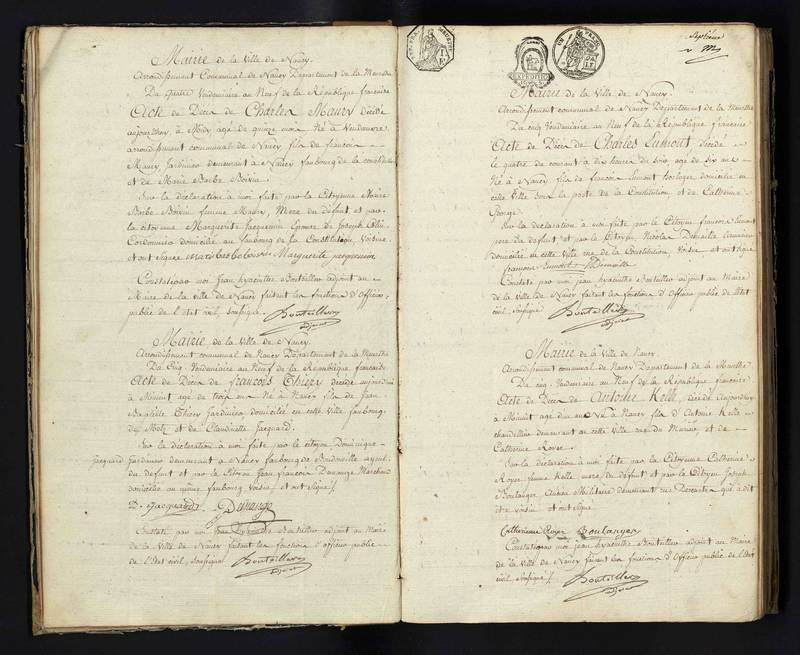 Mairie de la Ville de Nancy.
Arrondissement Communal de Nancy Département de la Meurthe
Du quatre Vendemiaire an Neuf de la République française
Acte de Décès de Charles Maury décédé
aujourdhuy à Midy age de quinze mois Né à Vendœuvre
arrondissement communal de Nancy fils de francois
Maury Jardinier demeurant à Nancy faubourg de la constitution
et de Marie Barbe Boivin
Sur la déclaration à moi faite par la Citoyenne Marie
Barbe Boivin femme Maury, Mere du défunt et par
la citoyenne Marguerite Jacquemin Epouse de Joseph
Cordonnier domicilié au faubourg de la Constitution Voisine
et ont signées Marguerite jacquemin
Constaté par moi Jean hyacinthe Bouteiller adjoint au
Maire de la Ville de Nancy faisant les fonctions d'Officier
public de l'état civil, soussigné. Bouteiller
adjoint
Mairie de la Ville de Nancy.
Arrondissement communal de Nancy Département de la Meurthe
Du Cinq Vendemiaire an Neuf de la République française
Acte de Décès de francois Thiery décédé aujourdhuy
à Minuit age de trois ans Né à Nancy fils de Jean
Baptiste Thiery Jardinier, domicilié en cette Ville faubourg
de Metz et de Claudinette Jacquard.
Sur la déclaration à moi faite par le citoyen Dominique
Jacquard Jardinier demeurant à Nancy faubourg de Boudonville ayeul
du défunt et par le Citoyen Jean francois Durange Marchand
domicilié au même faubourg Voisin et ont signé /.
D. Jacquard Durange
Constaté par moi Jean hyacinthe Bouteiller adjoint au Maire
de la Ville de Nancy faisant les fonctions d'officier public
de l'Etat civil, soussigné Bouteiller
adjoint
EXPEDITION
Septieme
Mairie de la Ville de Nancy.
Arrondissement communal de Nancy Département de la Meurthe
Du cinq Vendemiaire an Neuf de la République française
Acte de Décès de Charles Eumont décédé
le quatre du courant à dix heures du soir, age de six ans
Né à Nancy fils de francois Eumont horloger domicilié en
cette Ville de la Constitution et de Catherine
George
Sur la déclaration à moi faite par le Citoyen francois Eumont
pere du défunt et par le Citoyen Nicolas
Domicilié en cette Ville rue de la Constitution, Voisin et ont signé
francois Eumont
Constaté par moi jean hyacinthe Bouteiller adjoint au Maire
de la Ville de Nancy faisant les fonctions d'Officier public de l'Etat
civil, soussigné Bouteiller
adjoint
Mairie de la Ville de Nancy.
Arrondissement communal de Nancy Département de la Meurthe
Du cinq Vendemiaire an Neuf de la République française
Acte de Décès de Antoine Kelle, décédé Aujourdhuy
à Minuit age d'un an Né à Nancy fils d'Antoine Kelle
chandellier demeurant en cette Ville rue du et de
Catherine Royer.
Sur la déclaration à moi faite par la Citoyenne Catherine
Royer femme Kelle mere du défunt et par le Citoyen Joseph
Boulanger Militaire demeurant rue qui a dit
être voisin et ont signé
Catherinne Royer Boulanger
Constaté par moi jean hyacinthe Bouteiller adjoint au Maire
de la Ville de Nancy faisant les fonctions d'Officier public de l'Etat
civil, soussigné /. Bouteiller
adjoint